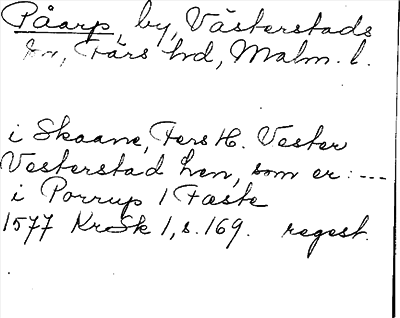 Påarp, by, Västerstads
sn, Färs hd, Malm. l.
i Skaane, Fers H. Vester
Vesterstad Len, som er: ---
i Porrup 1 Fæste
1577 KrSk 1, s. 169. regest.